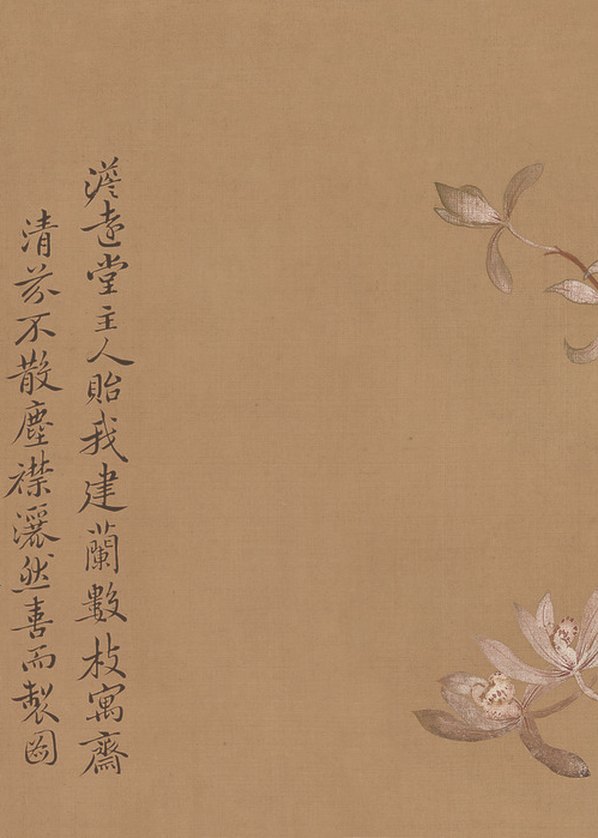 澹遠堂主人貽我建蘭數枝寓齋
清芬不散塵襟灑然喜而製圖